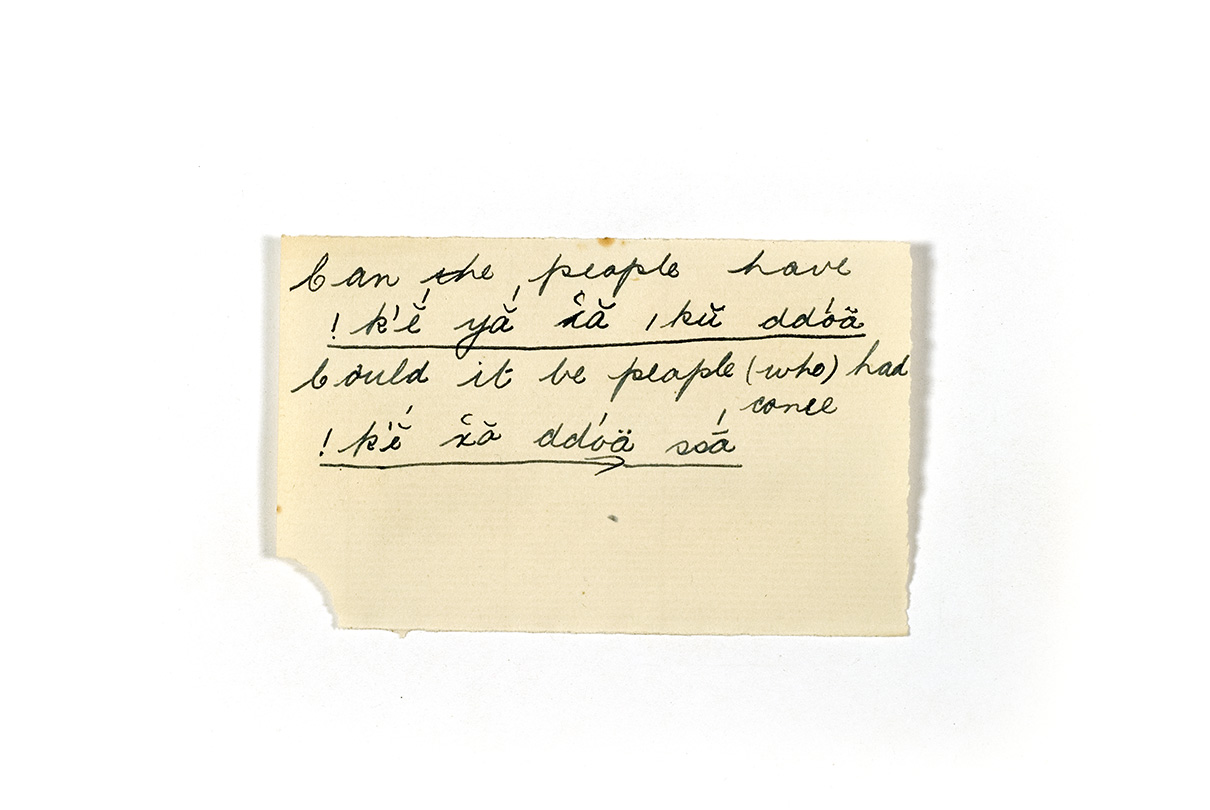 Can the people have
!k'ĕ́ yắ x̂ă |kŭ ddóä̆
Could it be people (who) had
come
!k'ĕ́ x̂ă ddóä ssā́